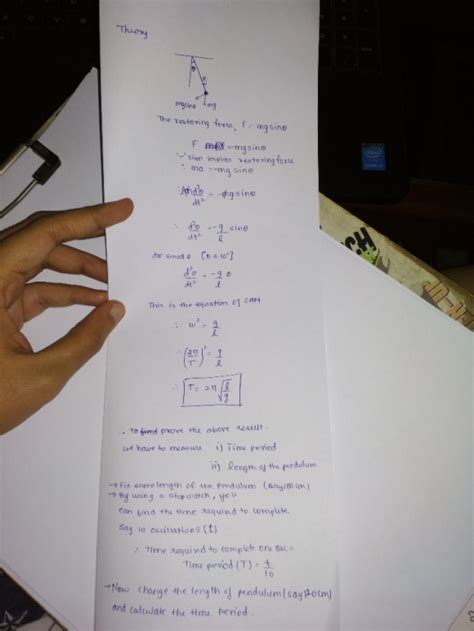 Theory
θ
mgsinθ mg
The restoring force, F = mgsinθ
F = -mgsinθ
'-' sign implies restoring force
∴ ma = -mgsinθ
d²θ/dt² = -mgsinθ
∴ d²θ/dt² = -g/l sinθ
for small θ [θ ≤ 10°]
d²θ/dt² = -g/l θ
This is the equation of SHM
∴ ω² = g/l
∴ (2π/T)² = g/l
∴ T = 2π√(l/g)
∴ To find prove the above result.
we have to measure i) Time period
ii) length of the pendulum
→ Fix some length of the pendulum (say 100 cm)
→ By using a stopwatch, you
can find the time required to complete
say 10 oscillations (t)
∴ Time required to complete one osc =
Time period (T) = t/10
→ Now change the length of pendulum (say 120cm)
and calculate the time period.
intel